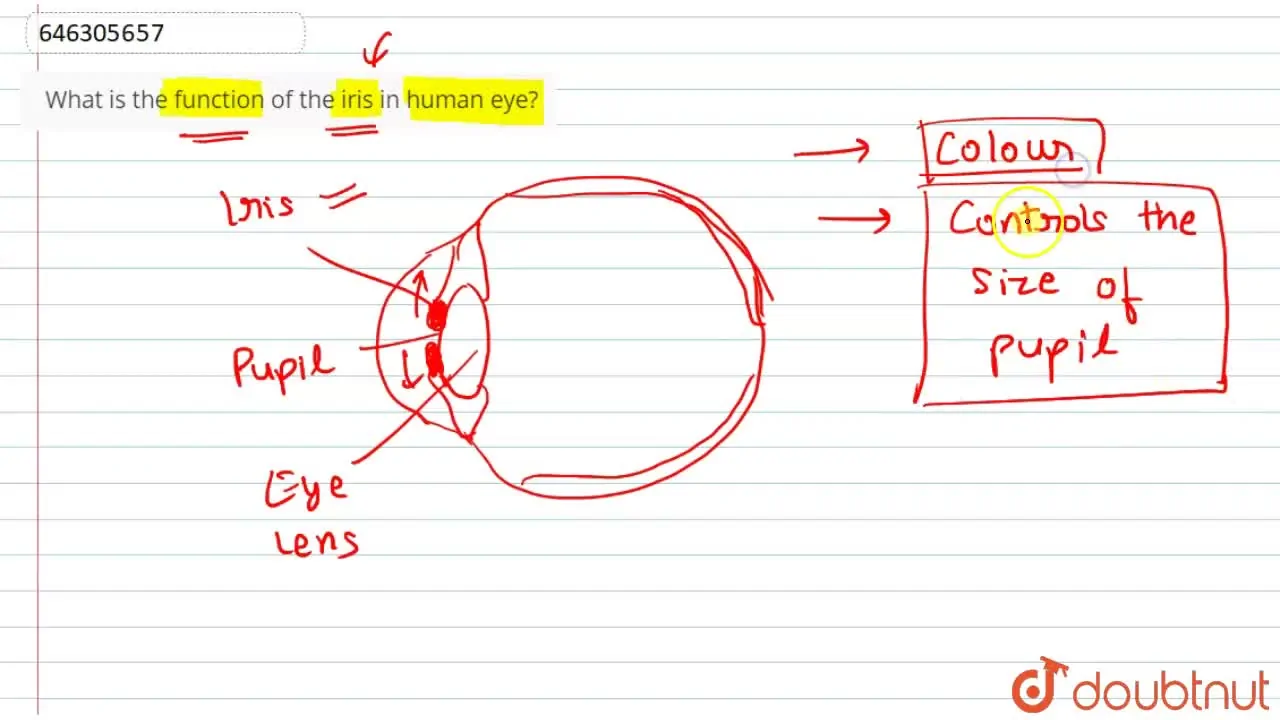 646305657
What is the function of the iris in human eye?
Iris
Pupil
Eye
lens
Colour
Controls the
size of
pupil
doubtnut